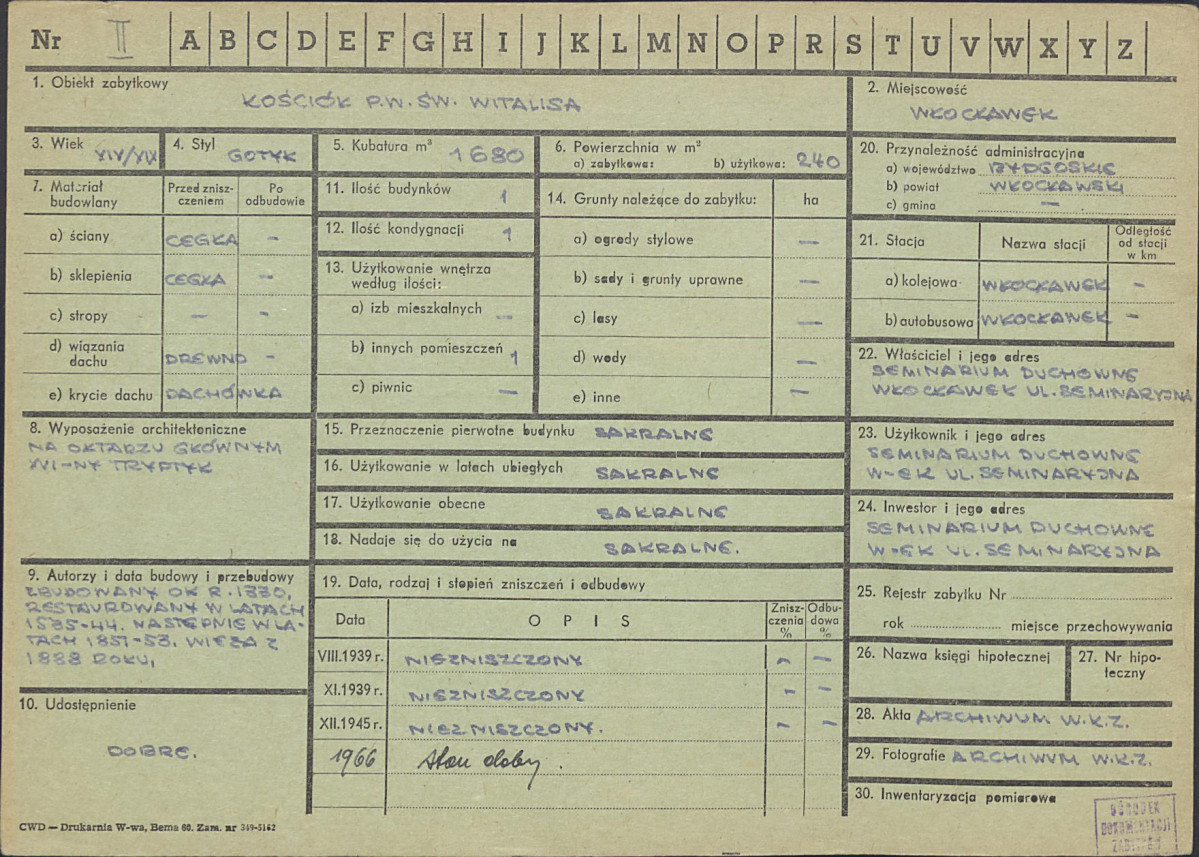 Nr II A B C D E F G H I J K L M N O P R S T U V W X Y Z
1. Obiekt zabytkowy
KOŚCIÓŁ P.W. ŚW. WITALISA
2. Miejscowość
WŁOCŁAWEK
3. Wiek XIV/XIX
4. Styl GOTYK
5. Kubatura m³ 1680
6. Powierzchnia w m²
a) zabytkowa: b) użytkowa: 240
20. Przynależność administracyjna
a) województwo BYDGOSKIE
b) powiat WŁOCŁAWSKI
c) gmina —
7. Materiał budowlany
Przed znisz-
czeniem
Po
odbudowie
a) ściany CEGŁA -
b) sklepienia CEGŁA -
c) stropy — -
d) wiązania
dachu DREWNO -
e) krycie dachu DACHÓWKA
11. Ilość budynków 1
12. Ilość kondygnacji 1
13. Użytkowanie wnętrza
według ilości:
a) izb mieszkalnych —
b) innych pomieszczeń 1
c) piwnic —
14. Grunty należące do zabytku: ha
a) ogrody stylowe —
b) sady i grunty uprawne —
c) lasy —
d) wody —
e) inne —
21. Stacja Nazwa stacji
Odległość
od stacji
w km
a) kolejowa WŁOCŁAWEK -
b) autobusowa WŁOCŁAWEK -
22. Właściciel i jego adres
SEMINARIUM DUCHOWNE
WŁOCŁAWEK UL. SEMINARYJNA
8. Wyposażenie architektoniczne
NA OŁTARZU GŁÓWNYM
XVI-NY TRYPTYK
15. Przeznaczenie pierwotne budynku SAKRALNE
16. Użytkowanie w latach ubiegłych SAKRALNE
17. Użytkowanie obecne SAKRALNE
18. Nadaje się do użycia na SAKRALNE.
23. Użytkownik i jego adres
SEMINARIUM DUCHOWNE
W-EK UL. SEMINARYJNA
24. Inwestor i jego adres
SEMINARIUM DUCHOWNE
W-EK UL. SEMINARYJNA
9. Autorzy i data budowy i przebudowy
ZBUDOWANY OK R. 1330,
RESTAUROWANY W LATACH
1535-44. NASTĘPNIE W LA-
TACH 1851-53. WIEŻA Z
1888 ROKU,
10. Udostępnienie
DOBRE.
19. Data, rodzaj i stopień zniszczeń i odbudowy
Data OPIS
Znisz-
czenia
%
Odbu-
dowa
%
VIII.1939 r. NIEZNISZCZONY - —
XI.1939 r. NIEZNISZCZONY - -
XII.1945 r. NIEZNISZCZONY. - -
1966 Stan dobry.
25. Rejestr zabytku Nr
rok miejsce przechowywania
26. Nazwa księgi hipotecznej
27. Nr hipo-
teczny
28. Akta ARCHIWUM W.K.Z.
29. Fotografie ARCHIWUM W.K.Z.
30. Inwentaryzacja pomiarowa
OŚRODEK
DOKUMENTACJI
ZABYTKÓW
CWD — Drukarnia W-wa, Bema 60. Zam. nr 349-5162